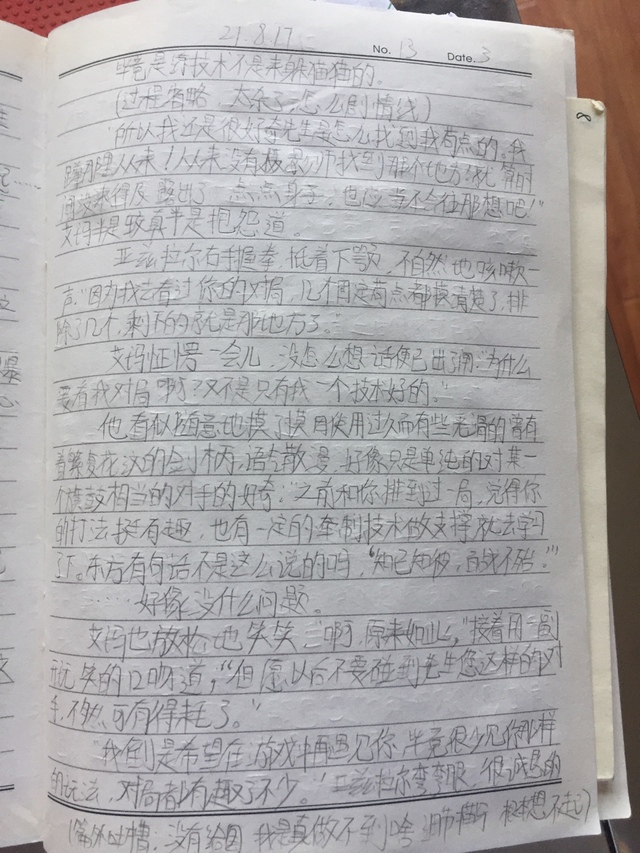 21.8.17
No. 13 Date. 3
毕竟是窍技术不是来躲猫猫的。
(过程省略，太杂了怎么剧情线)
"所以我还是很好奇先生是怎么找到我苟点的。我
蹲那里从来！从来没有被 找到那个地方
出了一点点身子，也应当不会往那想吧！"
艾玛半是较真半是抱怨道。
亚兹拉尔右手握拳，抵着下颚，不自然地咳嗽一
声，"因为我去看过你的对局，几个固定苟点都摸清楚了，排
除了几个，剩下的就是那地方了。"
艾玛怔愣一会儿，没怎么想话便已出了口："为什么
要看我对局啊？又不是只有我一个技术好的。"
他看似随意地摸了摸因使用过久而有些光滑的留有
着繁复花纹的剑柄，语气散漫，好像只是单纯的对某一
个旗鼓相当的对手的好奇："之前和你排到过一局，觉得你
的打法挺有趣，也有一定的牵制技术做支撑，就去学习
了下。东方有句话不是这么说的吗，'知己知彼，百战不殆。'"
……好像没什么问题。
艾玛也放松地笑笑："啊，原来如此，"接着用一副
玩笑的口吻道，"但愿以后不要碰到先生您这样的对
手，不然可有得耗了。"
"我倒是希望在游戏中再遇见你，毕竟很少见你那样
的玩法，对局都有趣了不少。"亚兹拉尔弯弯眼，很诚恳的
(篇外吐槽：没有给图 我是真做不到啥 根本想不起)